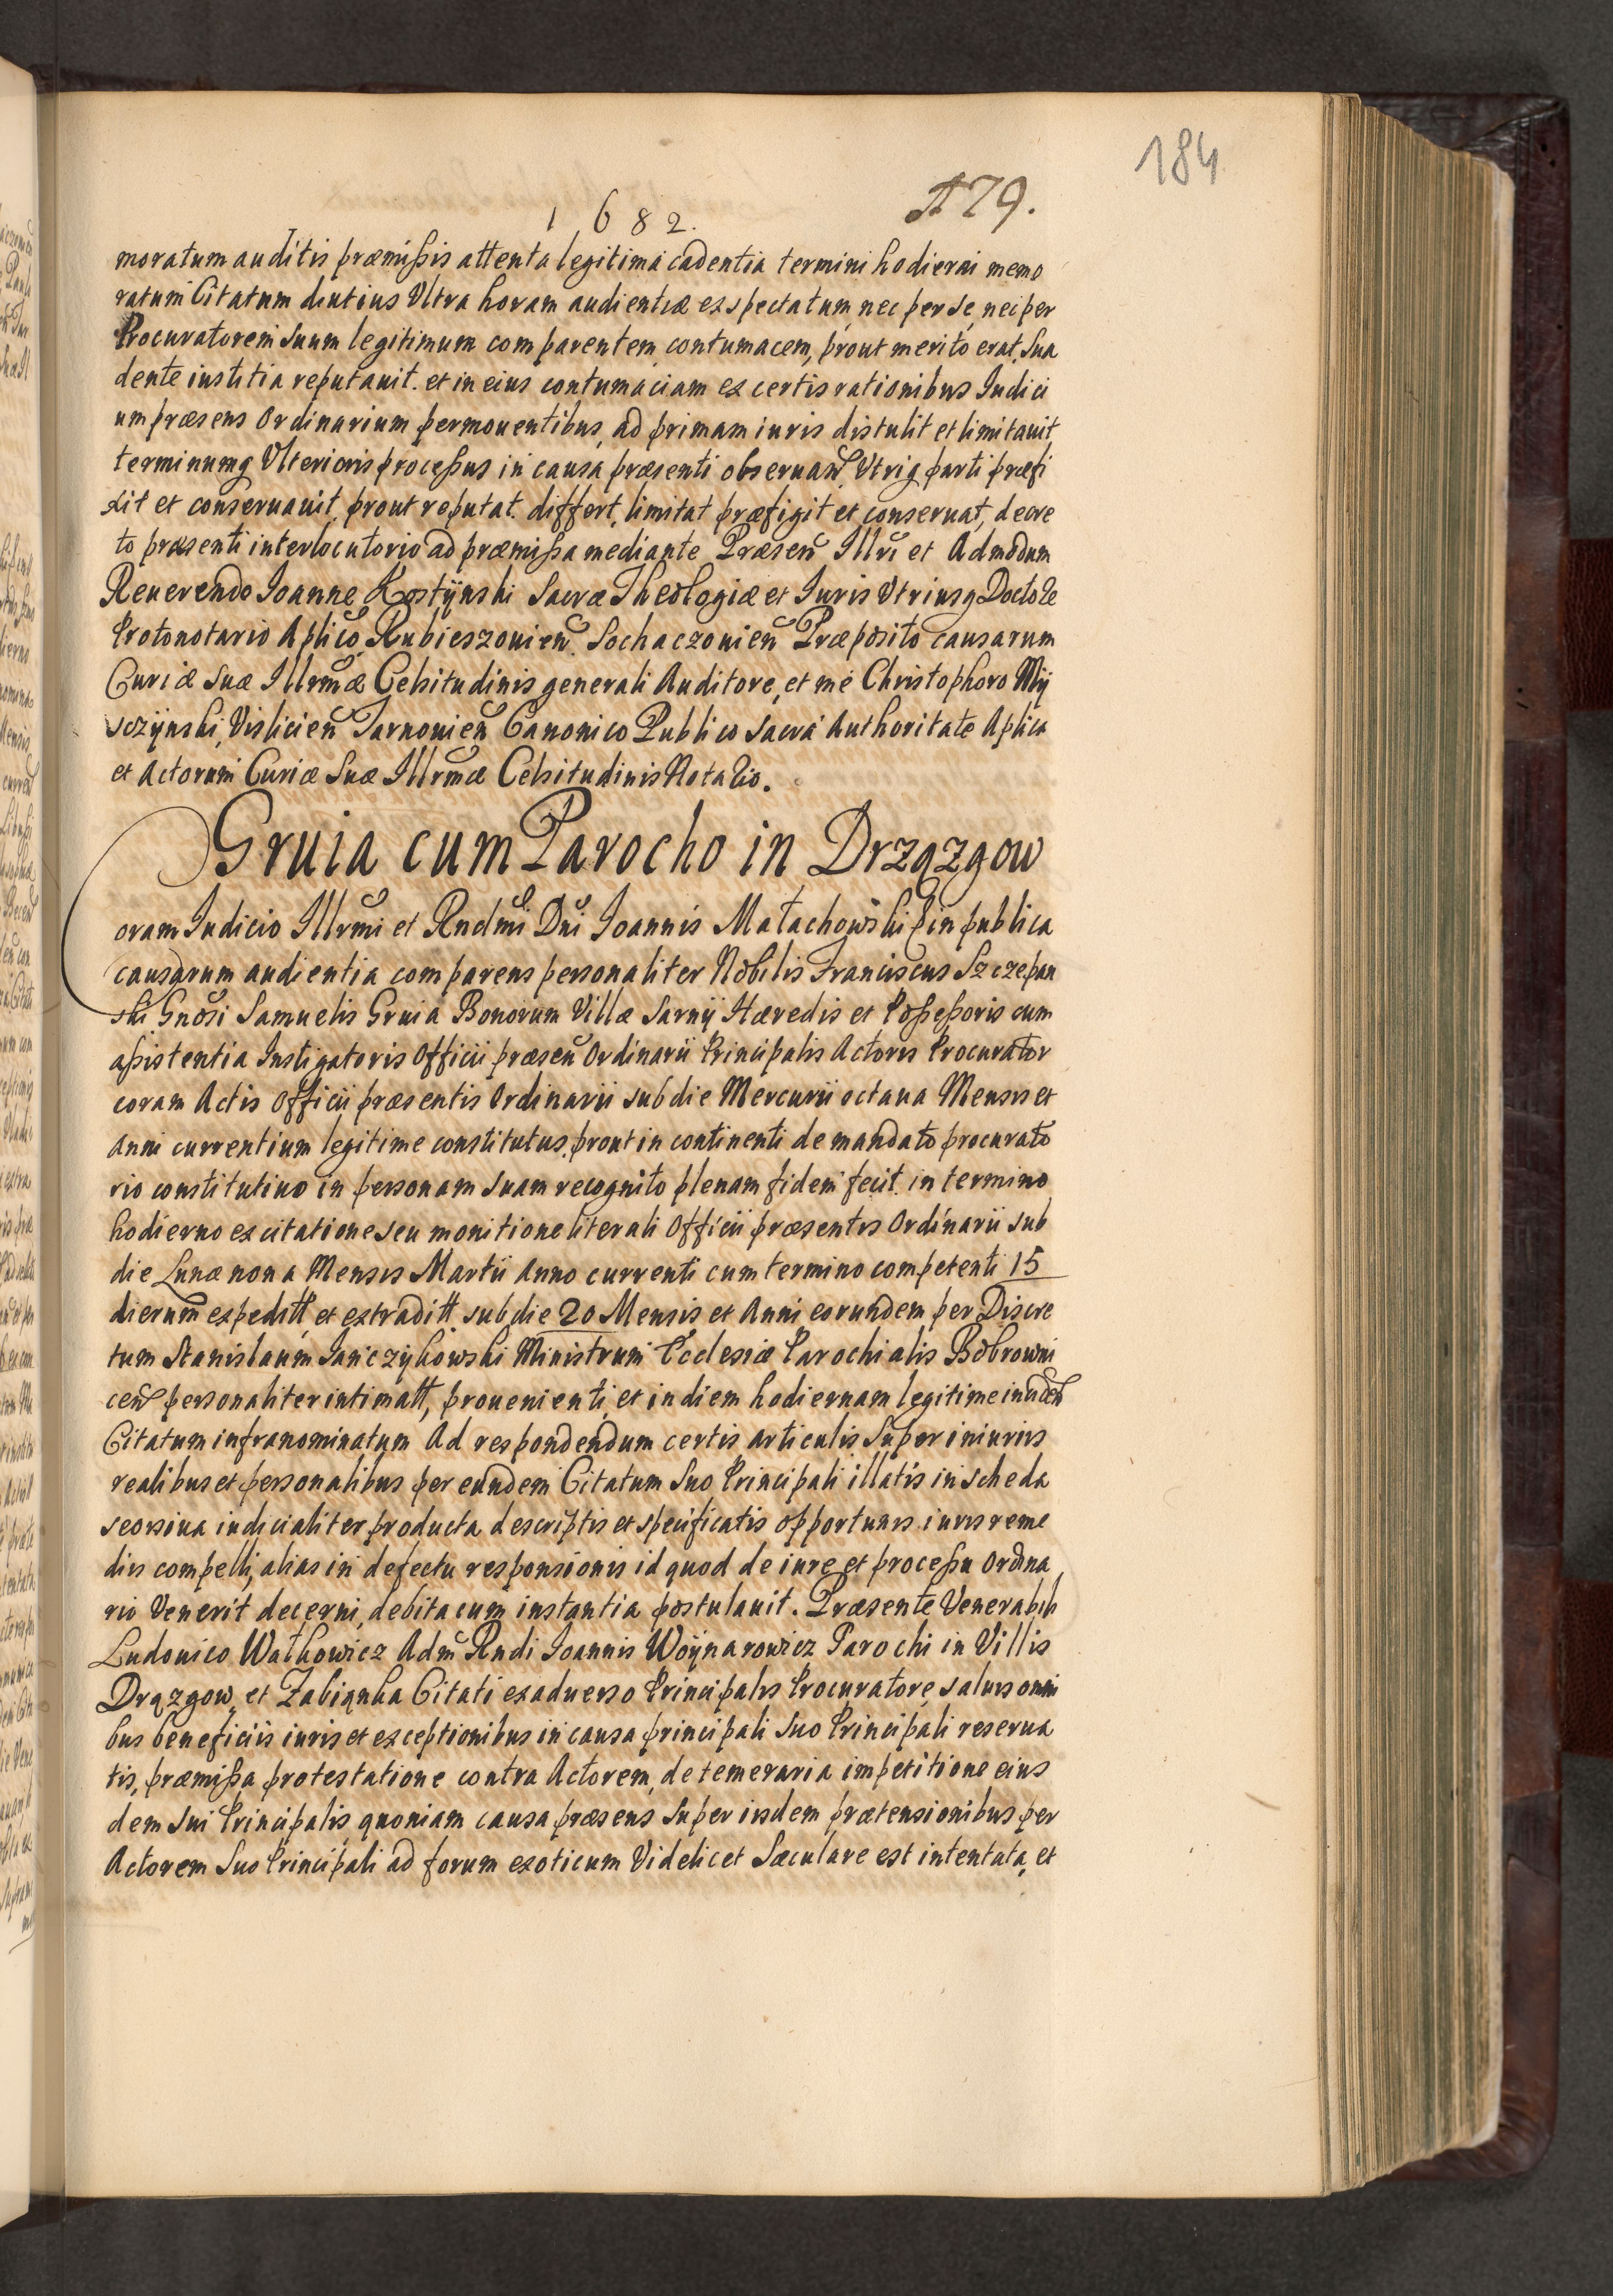 184
179.
1682.
moratum auditis præmissis attenta legitima cadentia termini hodierni memo
ratum Citatum diutius Vltra horam audientiæ exspectatum, nec per se, nec per
Procuratorem suum legitimum comparentem, contumacem, prout merito erat, sua
dente iustitia reputauit. et in eius contumaciam ex certis rationibus Iudici
um præsens Ordinarium permouentibus, ad primam iuris distulit et limitauit,
terminumq Vlterioris processus in causa præsenti obseruand Vtriq parti præfi
xit et conseruauit, prout reputat. differt, limitat præfigit et conseruat, decre
to præsenti interlocutorio ad præmissa mediante Præsen Illri et Admodum
Reuerendo Ioanne Kostynski Sacræ Theologiæ et Iuris Vtriusq Doctore
Protonotario Aplico, Rubieszouien. Sochaczouien Præposito causarum
Curiæ Suæ Illrmæ Celsitudinis generali Auditore, et me Christophoro My
sczynski, Visliciens Tarnouien Canonico Publico Sacra Authoritate Aplica
et Actorum Curiæ Suæ Illrmæ Celsitudinis Notario.
Gruia cum Parocho in Drzązgow
Coram Iudicio Illrmi et Rndmi Dni Ioannis Małachowski E in publica
causarum audientia comparens personaliter Nobilis Franciscus Szczepan
ski Gnosi Samuelis Gruia Bonorum Villæ Sarny Hæredis et Possessoris cum
assistentia Instigatoris Officii præsen Ordinarii Principalis Actoris Procurator
coram Actis Officii præsentis Ordinarii sub die Mercurii octaua Mensis et
Anni currentium legitime constitutus, prout in continenti de mandato procurato
rio constitutiuo in personam suam recognito plenam fidem fecit. in termino
hodierno ex citatione seu monitione literali Officii præsentis Ordinarii sub
die Lunæ nona Mensis Martii Anno currenti cum termino competenti 15
dierum expeditt et extraditt sub die 20 Mensis et Anni eorundem per Discre
tum Stanislaum Janczykowski Ministrum Ecclesiæ Parochialis Bobrowni
cen personaliter intimatt, prouenienti, et in diem hodiernam legitime inciden
Citatum infranominatum Ad respondendum certis articulis Super iniuriis
realibus et personalibus per eundem Citatum Suo Principali illatis in scheda
seorsiua iudicialiter producta descriptis et specificatis opportunis iuris reme
diis compelli, alias in defectu responsionis id quod de iure et processu Ordina
rio Venerit decerni, debita cum instantia postulauit. Præsente Venerabili
Ludouico Wałkowicz Adm Rndi Ioannis Woynarowicz Parochi in Villis
Drązgow, et Zabianka Citati ex aduerso Principalis Procuratore, saluis omni
bus beneficiis iuris et exceptionibus in causa principali Suo Principali reserua
tis, præmissa protestatione contra Actorem, de temeraria impetitione eius
dem sui Principalis quoniam causa præsens Super iisdem prætensionibus per
Actorem Suo Principali ad forum exoticum Videlicet Sæculare est intentata, et